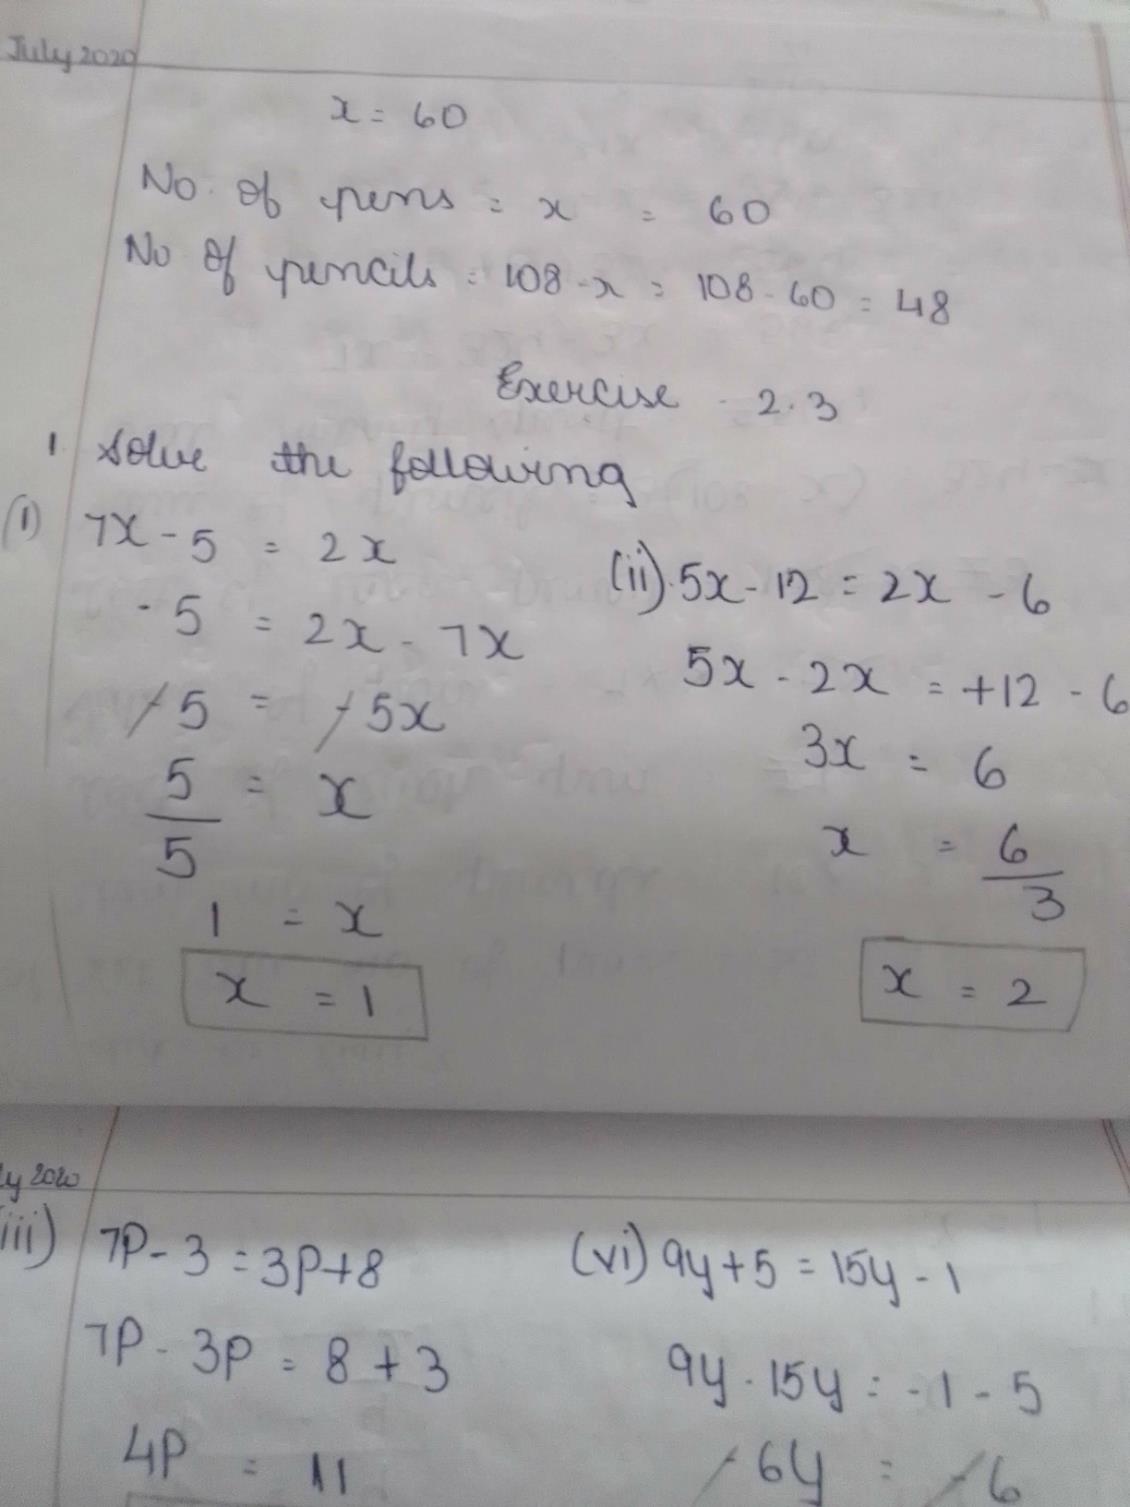 July 2020
x = 60
No. of pens = x = 60
No of pencils = 108 - x = 108 - 60 = 48
Exercise - 2.3
1 Solve the following
(i) 7x - 5 = 2x
- 5 = 2x - 7x
- 5 = - 5x
5/5 = x
1 = x
x = 1
(ii) 5x - 12 = 2x - 6
5x - 2x = +12 - 6
3x = 6
x = 6/3
x = 2
ly 2020
iii) 7P - 3 = 3P + 8
7P - 3P = 8 + 3
4P = 11
(vi) 9y + 5 = 15y - 1
9y - 15y = -1 - 5
- 6y = - 6